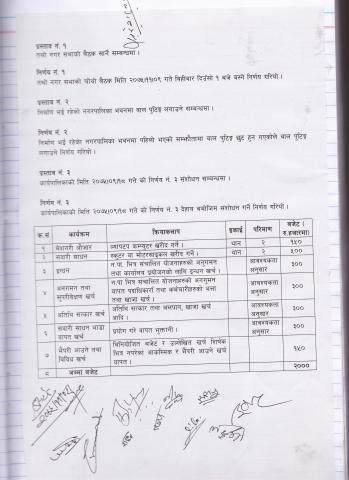 प्रस्ताव नं. १
तथौ नगर सभाको बैठक सार्ने सम्बन्धमा ।
निर्णय नं. १
तथौ नगर सभाको चौथो बैठक मिति २०७५/११/०९ गते बिहीबार दिउँसो १ बजे बस्ने निर्णय गरियो ।
प्रस्ताव नं. २
निर्माण भई रहेको नगरपालिका भवनमा वाल पुटिङ्ग लगाउने सम्बन्धमा ।
निर्णय नं. २
निर्माण भई रहेका नगरपालिका भवनमा पहिलो भएको सम्झौतामा वाल पुटिङ्ग छुट हुन गएकोले वाल पुटिङ्ग
लगाउने निर्णय गरियो ।
प्रस्ताव नं. ३
कार्यपालिकाको मिति २०७५/०९/१८ गते को निर्णय नं. ३ संशोधन सम्बन्धमा ।
निर्णय नं. ३
कार्यपालिकाको मिति २०७५/०९/१८ गते को निर्णय नं. ३ देहाय बमोजिम संशोधन गर्ने निर्णय गरियो ।
क्र.सं कार्यक्रम क्रियाकलाप इकाई परिमाण बजेट ( रु.हजारमा)
१ मेशनरी औजार ल्यापटप कम्प्युटर खरीद गर्ने । थान २ १५०
२ सवारी साधन स्कुटर वा मोटरसाइकल खरीद गर्ने । थान २ ५००
३ इन्धन न.पा. भित्र संचालित योजनाहरुको अनुगमन तथा कार्यालय प्रयोजनको लागि इन्धन खर्च । आवश्यकता अनुसार ३००
४ अनुगमन तथा सुपरीवेक्षण खर्च न.पा भित्र संचालित योजनाहरुको अनुगमन वापत पदाधिकारी तथा कर्मचारीहरुको भत्ता तथा खाजा खर्च । आवश्यकता अनुसार ३००
५ अतिथि सत्कार खर्च अतिथि सत्कार तथा जलपान, खाजा खर्च आदि । आवश्यकता अनुसार ३००
६ सवारी साधन भाडा वापत खर्च प्रयोग गरे वापत भुक्तानी । आवश्यकता अनुसार ३००
७ भैपरी आउने तथा विविध खर्च बिनियोजित बजेट र उल्लेखित खर्च शिर्षक भित्र नपरेका आकस्मिक र भैपरी आउने खर्च वापत । १५०
८ जम्मा बजेट २०००